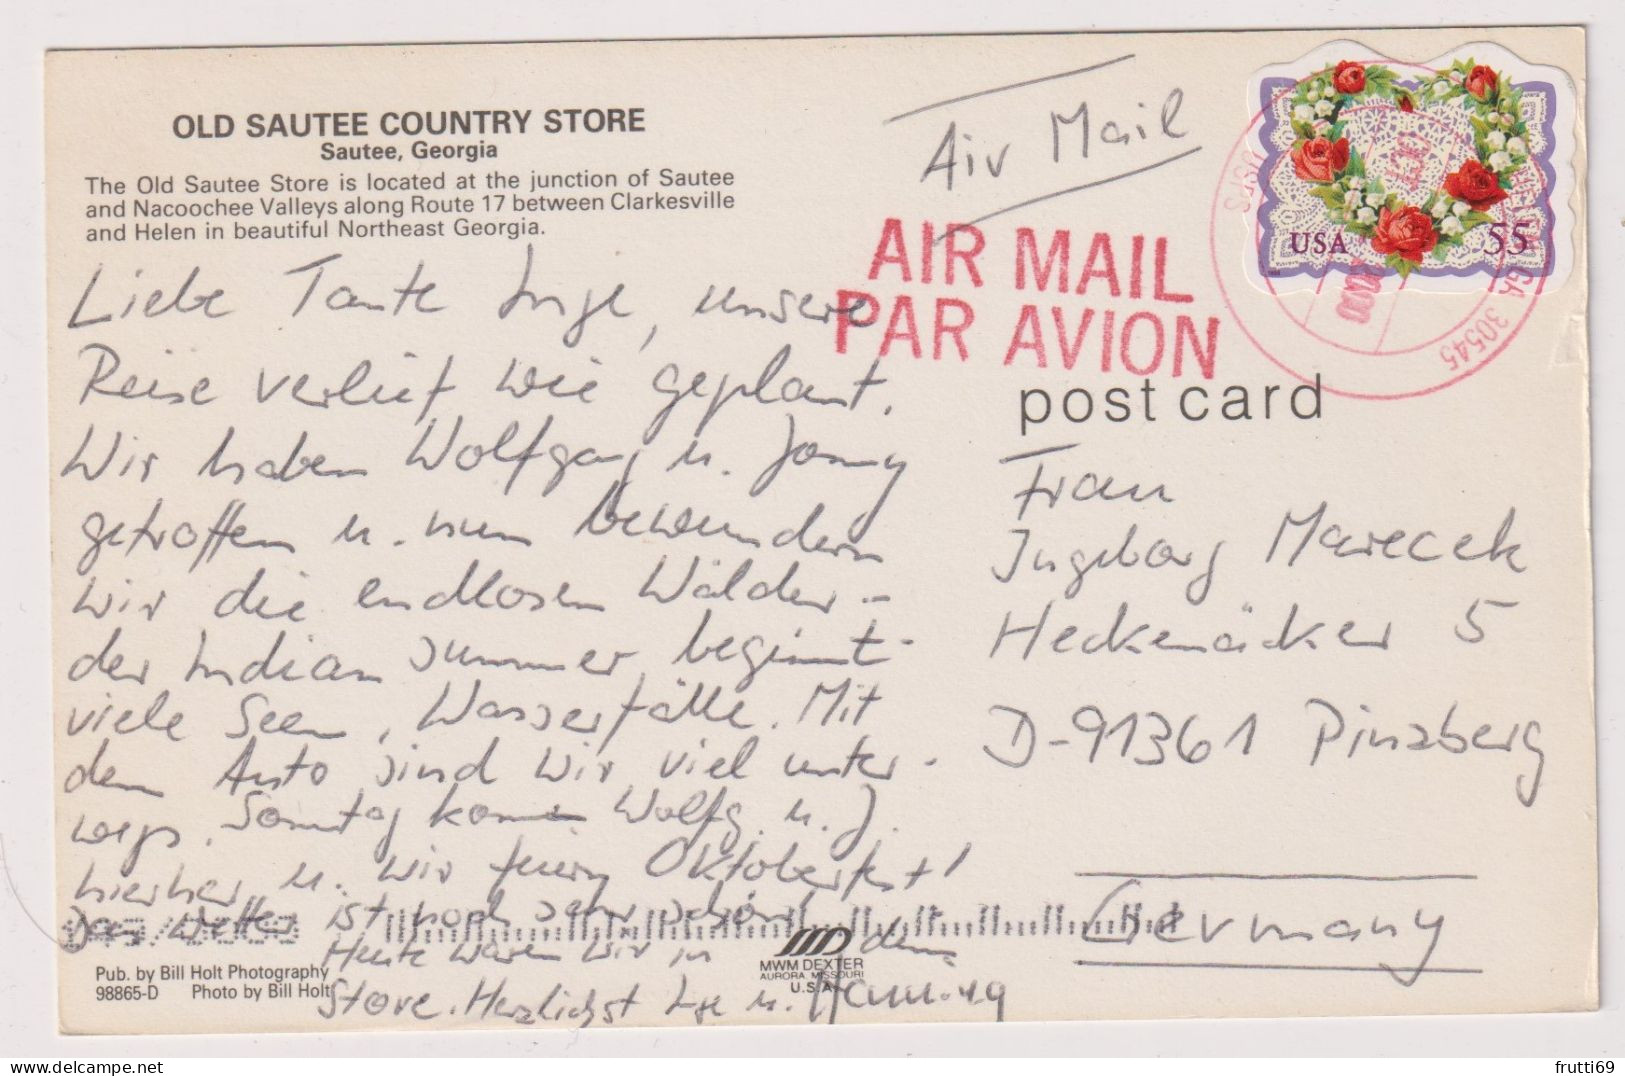 OLD SAUTEE COUNTRY STORE
Sautee, Georgia
The Old Sautee Store is located at the junction of Sautee
and Nacoochee Valleys along Route 17 between Clarkesville
and Helen in beautiful Northeast Georgia.
Air Mail
AIR MAIL
PAR AVION
USA 55
GA 30545
post card
Liebe Tante Inge, unsere
Reise verlief wie geplant.
Wir haben Wolfgang u. Jonny
getroffen u. nun bewundern
wir die endlosen Wälder -
der Indian Summer beginnt -
viele Seen, Wasserfälle. Mit
dem Auto sind wir viel unter-
wegs. Sonntag kommen Wolfg. u. J.
hierher u. wir feiern Oktoberfest!
Das Wetter ist noch sehr schön!
Heute waren wir in dem
Store. Herzlichst u.
Frau
Ingeborg Marecek
Heckenäcker 5
D-91361 Pinzberg
Germany
Pub. by Bill Holt Photography
98865-D Photo by Bill Holt
MWM DEXTER
AURORA, MISSOURI
U.S.A.
frutti69